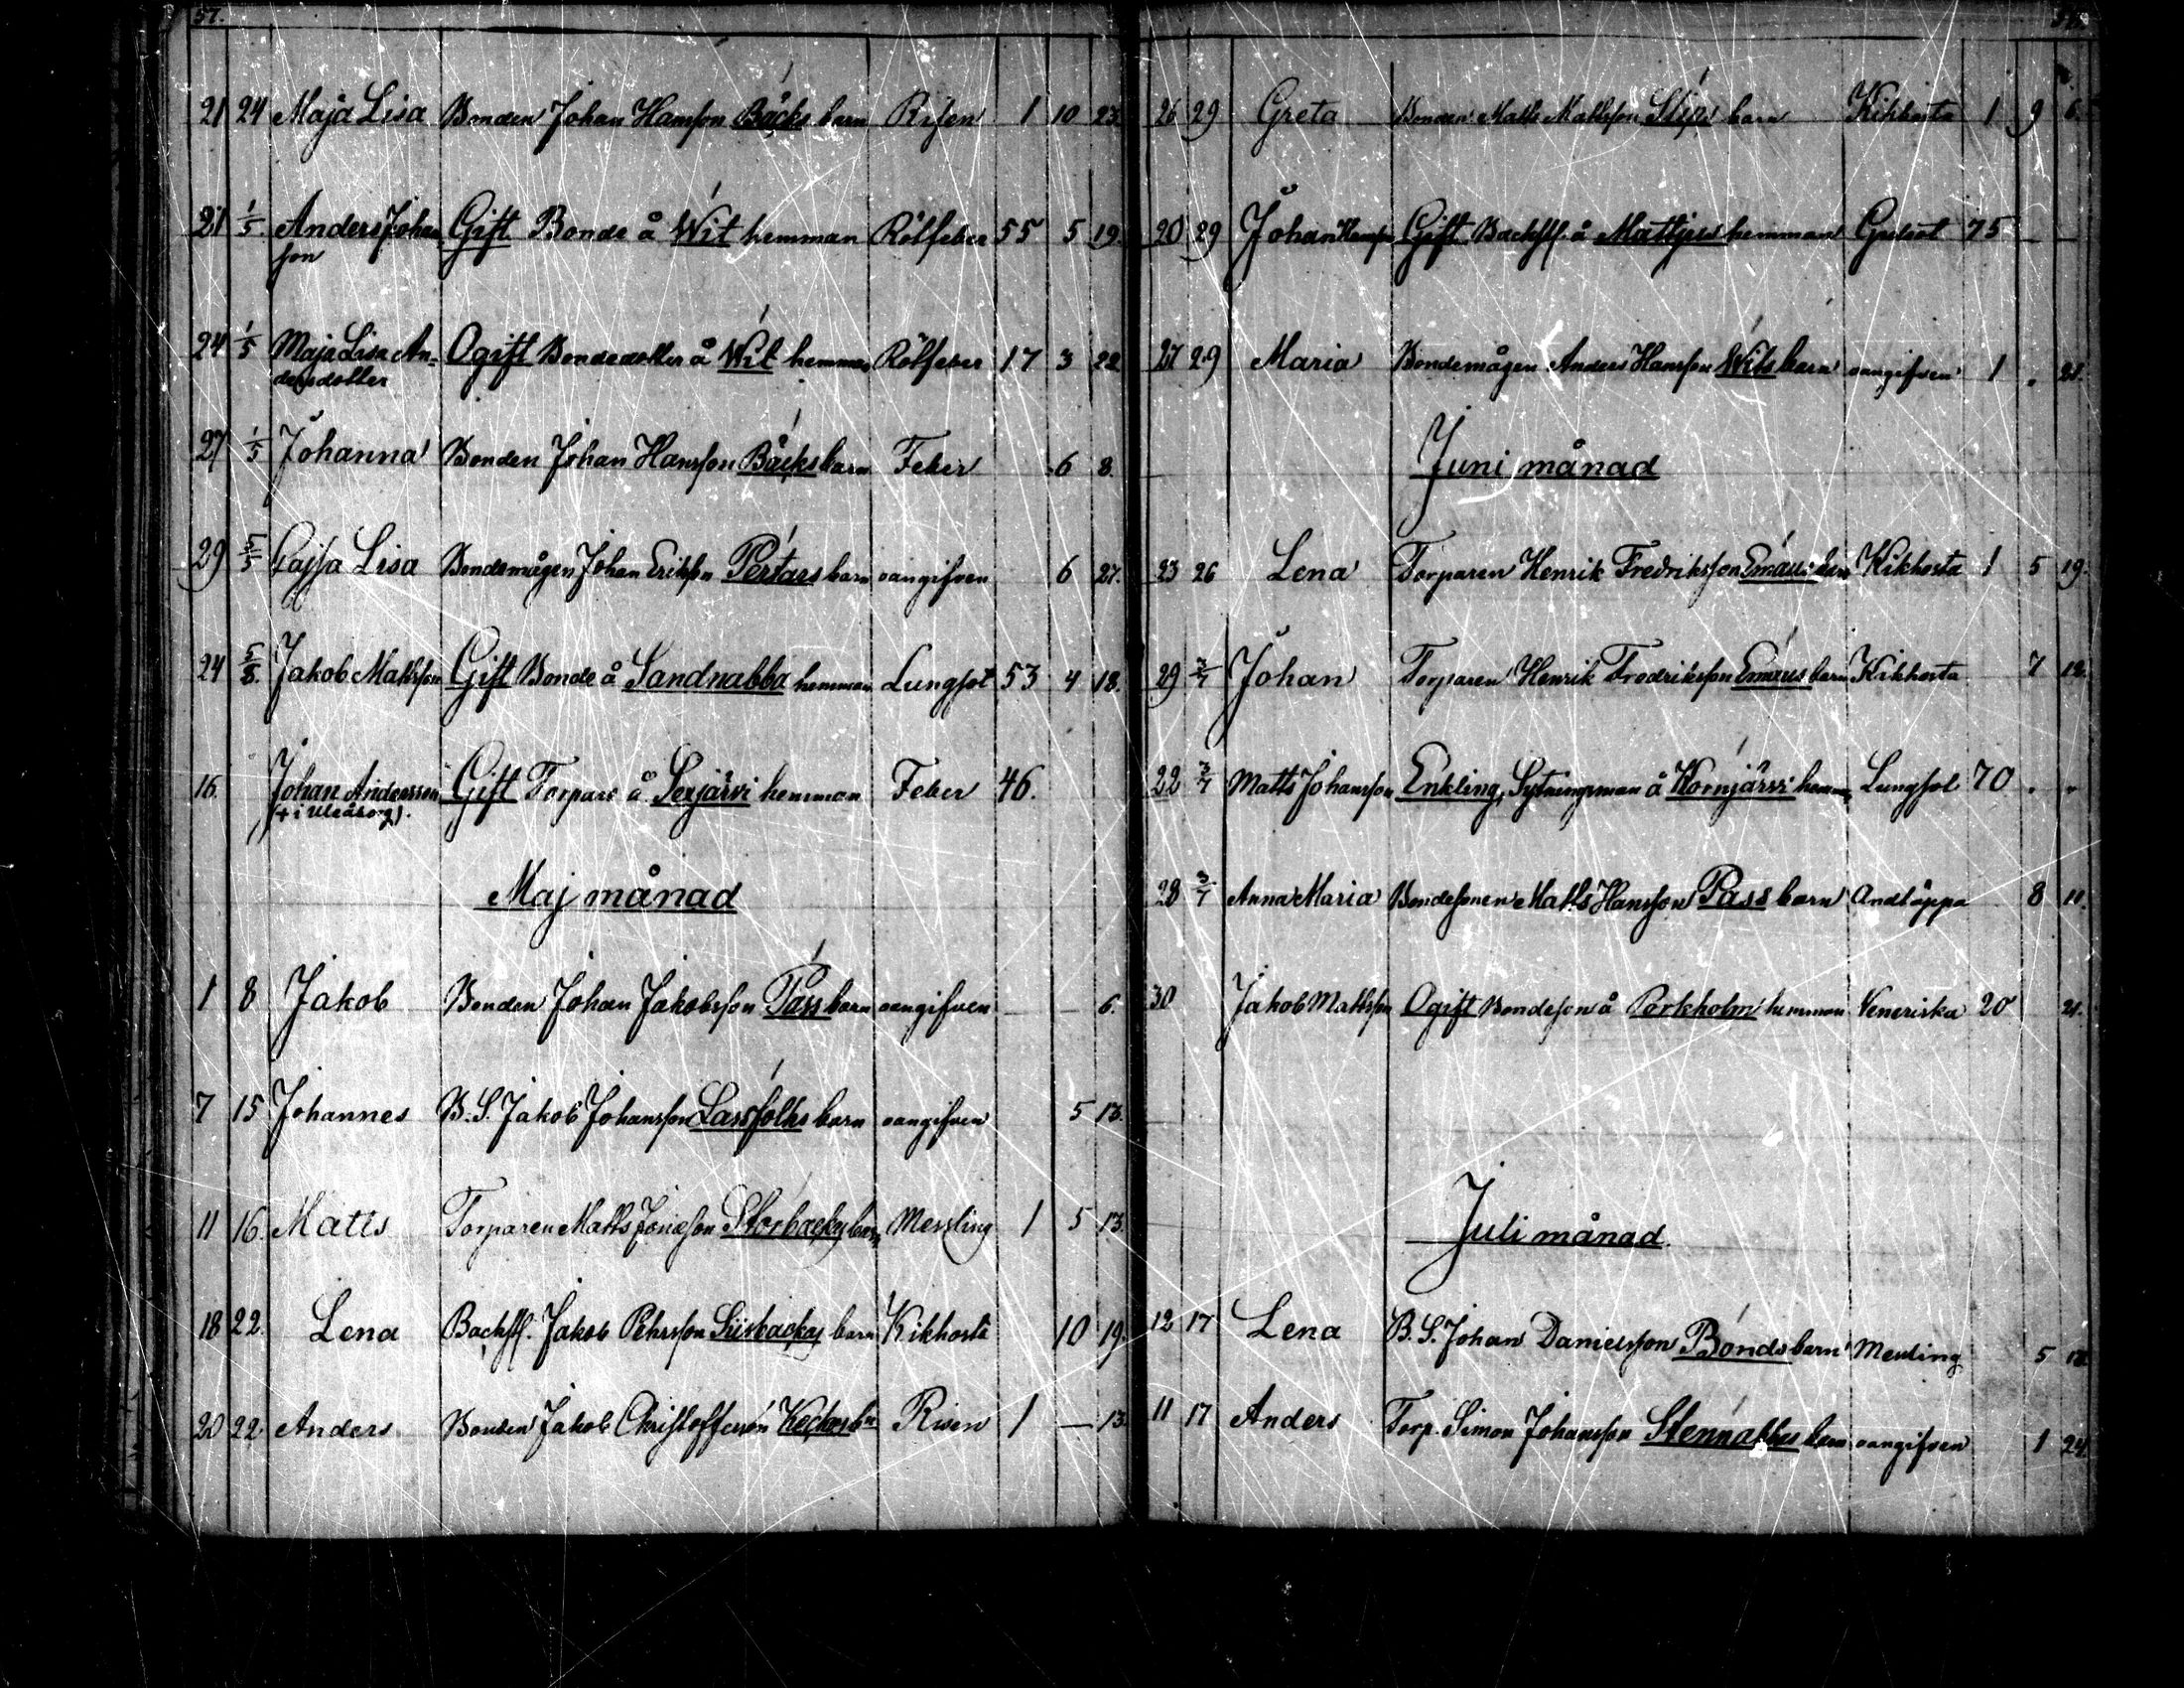 57.
21 24 Maja Lisa Bonden Johan Hansson Bäcks barn Risen 1 10 23.
21 1/5 Anders Johan Gift Bonde å Wit hemman Rötfeber 55 5 19.
son
24 1/5 Maja Lisa An- Ogift Bondedotter å Wit hemman Rötfeber 17 3 22
dersdotter
27 1/5 Johanna Bonden Johan Hansson Bäcks barn Feber 6 8.
29 5/5 Cajsa Lisa Bondemågen Johan Eriksson Pertars barn oangifven 6 27.
24 5/5. Jakob Mattsson Gift Bonde å Sandnabba hemman Lungsot 53 4 18.
16. Johan Andersson Gift Torpare å Serjärvi hemman Feber 46.
+ i Uleåborg).
Maj månad
1 8 Jakob Bonden Johan Jakobsson Pass barn oangifven — — 6.
7 15 Johannes B. S. Jakob Johansson Lassfolks barn oangifven 5 13.
11 16. Matts Torparen Matts Jonasson Storbacka barn Messling 1 5 13.
18 22. Lena Backst. Jakob Pehrsson barn Kikhosta 10 19.
20 22. Anders Bonden Jakob Christoffersson Risen 1 — 13.
26 29 Greta Bonden Matts Mattsson Slips barn Kikhosta 1 9 6.
20 29 Johan Hansson Gift Backst. å Mattjus hemman Gulsot 75 — —
27 29 Maria Bondemågen Anders Hansson Wits barn oangifven 1 . 21.
Juni månad
23 26 Lena Torparen Henrik Fredriksson Emaus barn Kikhosta 1 5 19.
29 3/7 Johan Torparen Henrik Fredriksson Emaus barn Kikhosta 7 12.
22 3/7 Matts Johansson Enkling, Sytningsman å Kornjärvi hemman Lungsot 70 . .
28 3/7 Anna Maria Bondesonen Matts Hansson Pass barn Andtäppa 8 10.
30 Jakob Mattsson Ogift Bondeson å Porkholm hemman Veneriska 20 21.
Juli månad
12 17 Lena B. S. Johan Danielsson Bonds barn Messling 5 18
11 17 Anders Torp. Simon Johansson Stennabba barn oangifven 1 24.